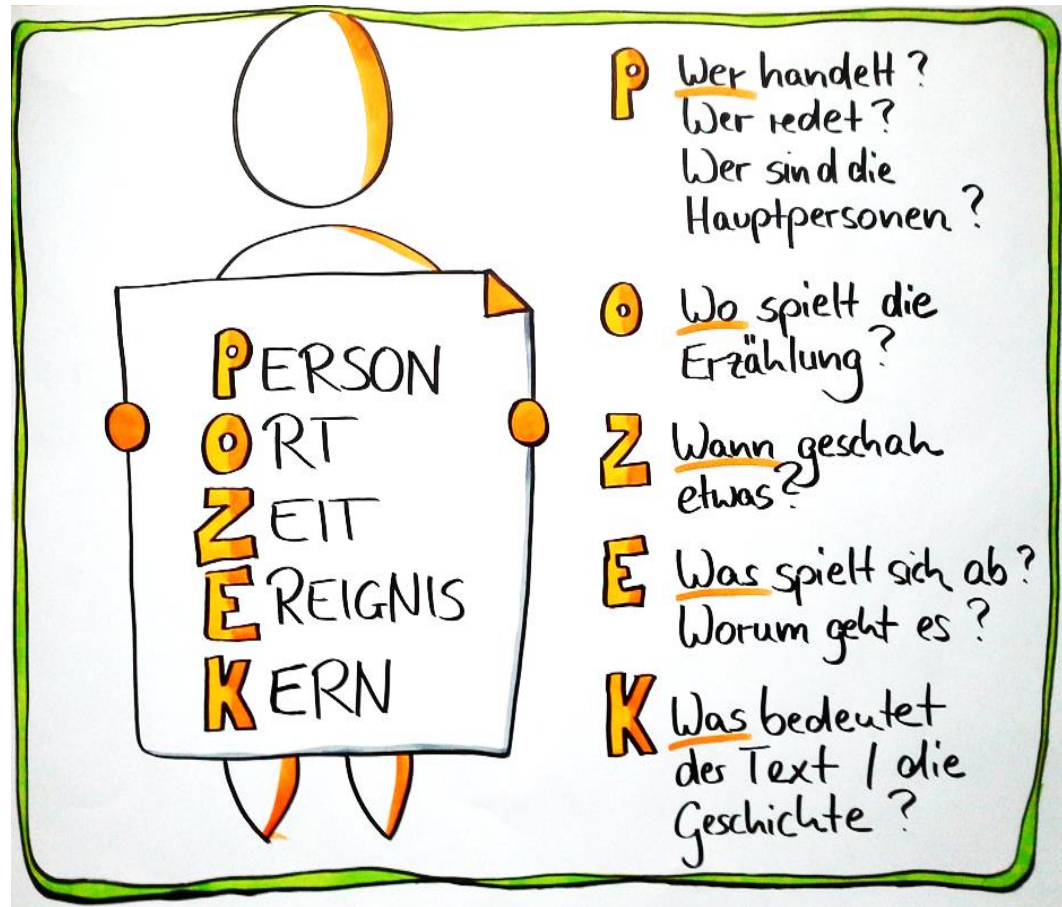 PERSON
ORT
ZEIT
EREIGNIS
KERN
P Wer handelt?
Wer redet?
Wer sind die
Hauptpersonen?
O Wo spielt die
Erzählung?
Z Wann geschah
etwas?
E Was spielt sich ab?
Worum geht es?
K Was bedeutet
der Text / die
Geschichte?